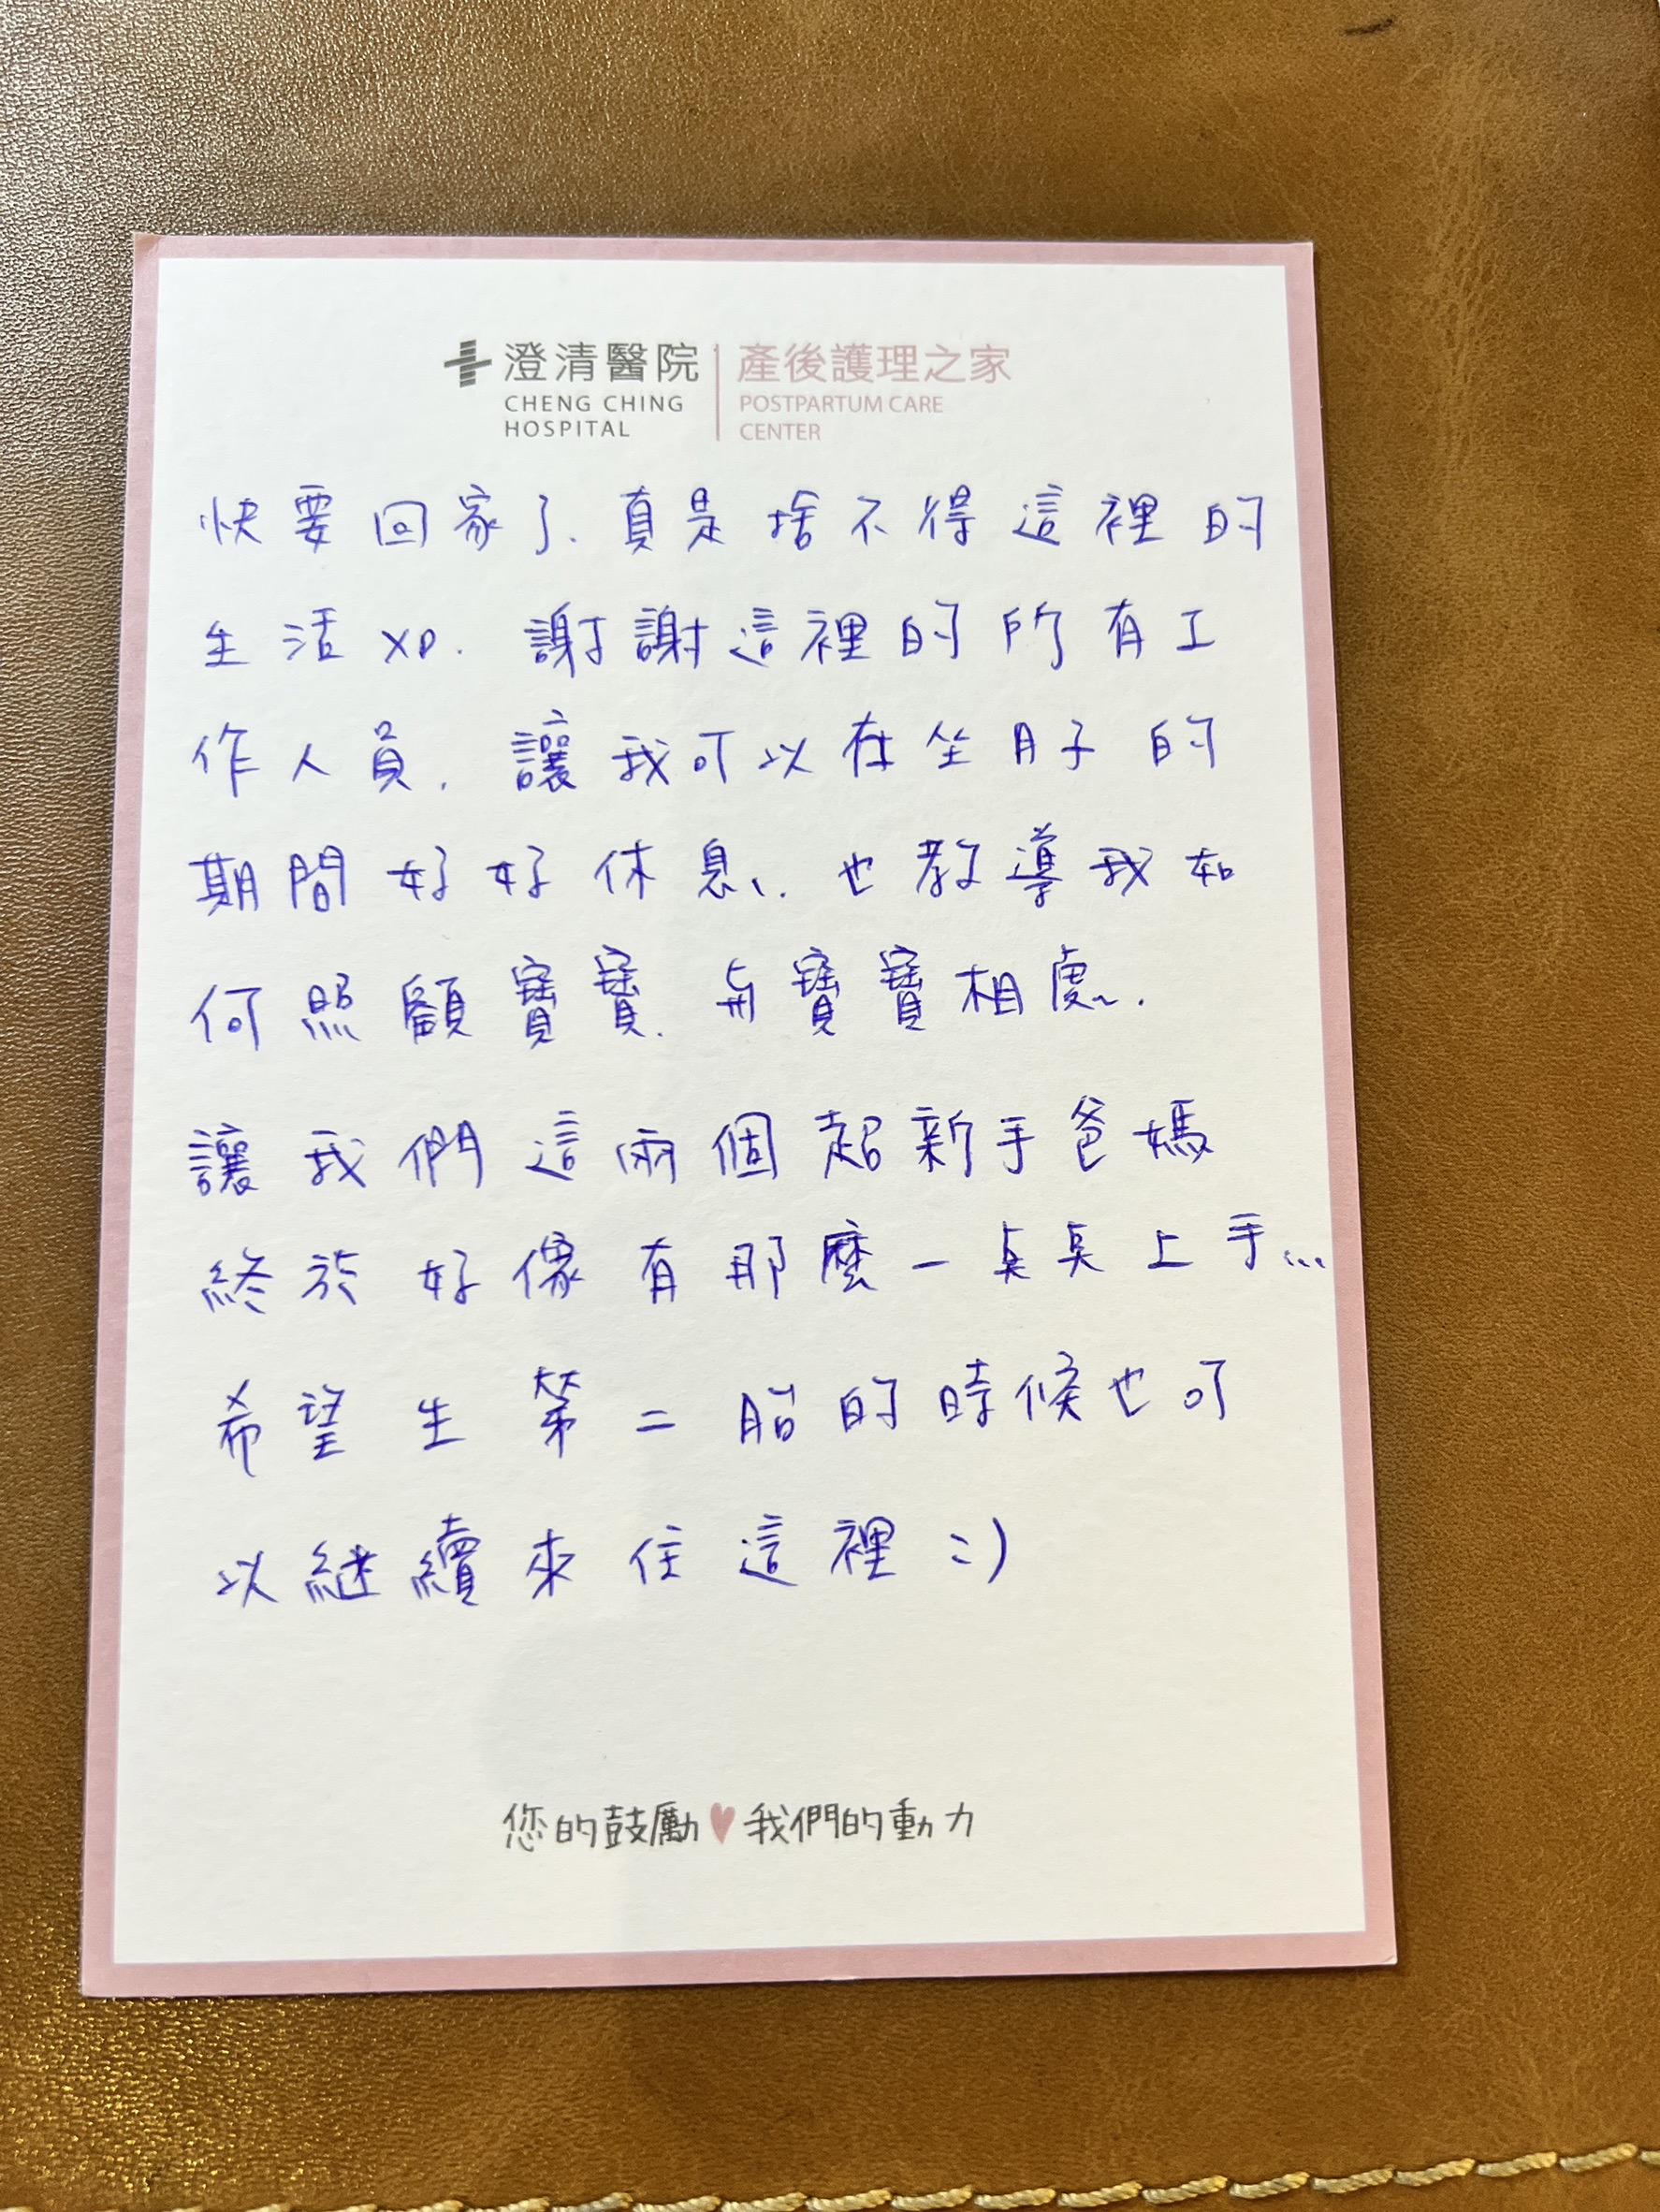 澄清醫院 產後護理之家
CHENG CHING POSTPARTUM CARE
HOSPITAL CENTER
快要回家了.真是捨不得這裡的
生活XD. 謝謝這裡的所有工
作人員. 讓我可以在坐月子的
期間好好休息.也教導我如
何照顧寶寶.與寶寶相處.
讓我們這兩個超新手爸媽
終於好像有那麼一桌桌上手...
希望生第二胎的時候也可
以繼續來住這裡:)
您的鼓勵♥我們的動力